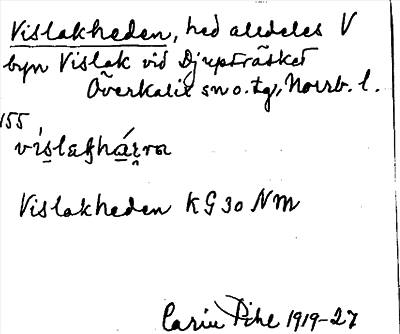 Vislakheden, hed alldeles V
byn Vislak vid Djupträsket
Överkalix sn o. tg, Norrb. l.
155
Vislakheden KG 30 NM
Carin Pihl 1919-27